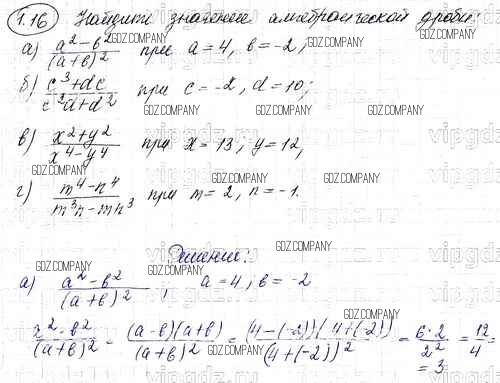 1.16 Найдите значение алгебраической дроби:
а) (a² - b²)/(a+b)² при a = 4, b = -2;
б) (c³ + dc)/(c²d + d²) при c = -2, d = 10;
в) (x² + y²)/(x⁴ - y⁴) при x = 13, y = 12,
г) (m⁴ - n⁴)/(m³n - mn³) при m = 2, n = -1.
Решение:
а) (a² - b²)/(a+b)², a = 4, b = -2
(a² - b²)/(a+b)² = (a-b)(a+b)/(a+b)² = (4-(-2))(4+(-2))/(4+(-2))² = 6·2/2² = 12/4 =
= 3
GDZ.COMPANY
vipgdz.ru